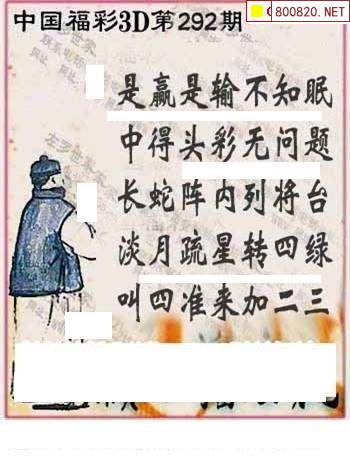 800820.NET
中国福彩3D第292期
是赢是输不知眠
中得头彩无问题
长蛇阵内列将台
淡月疏星转四绿
叫四准来加二三